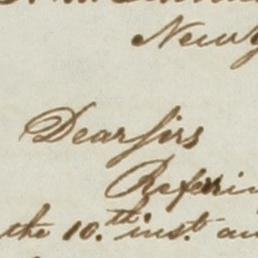 New
Dear Sirs
Referrin
the 10.th inst. an